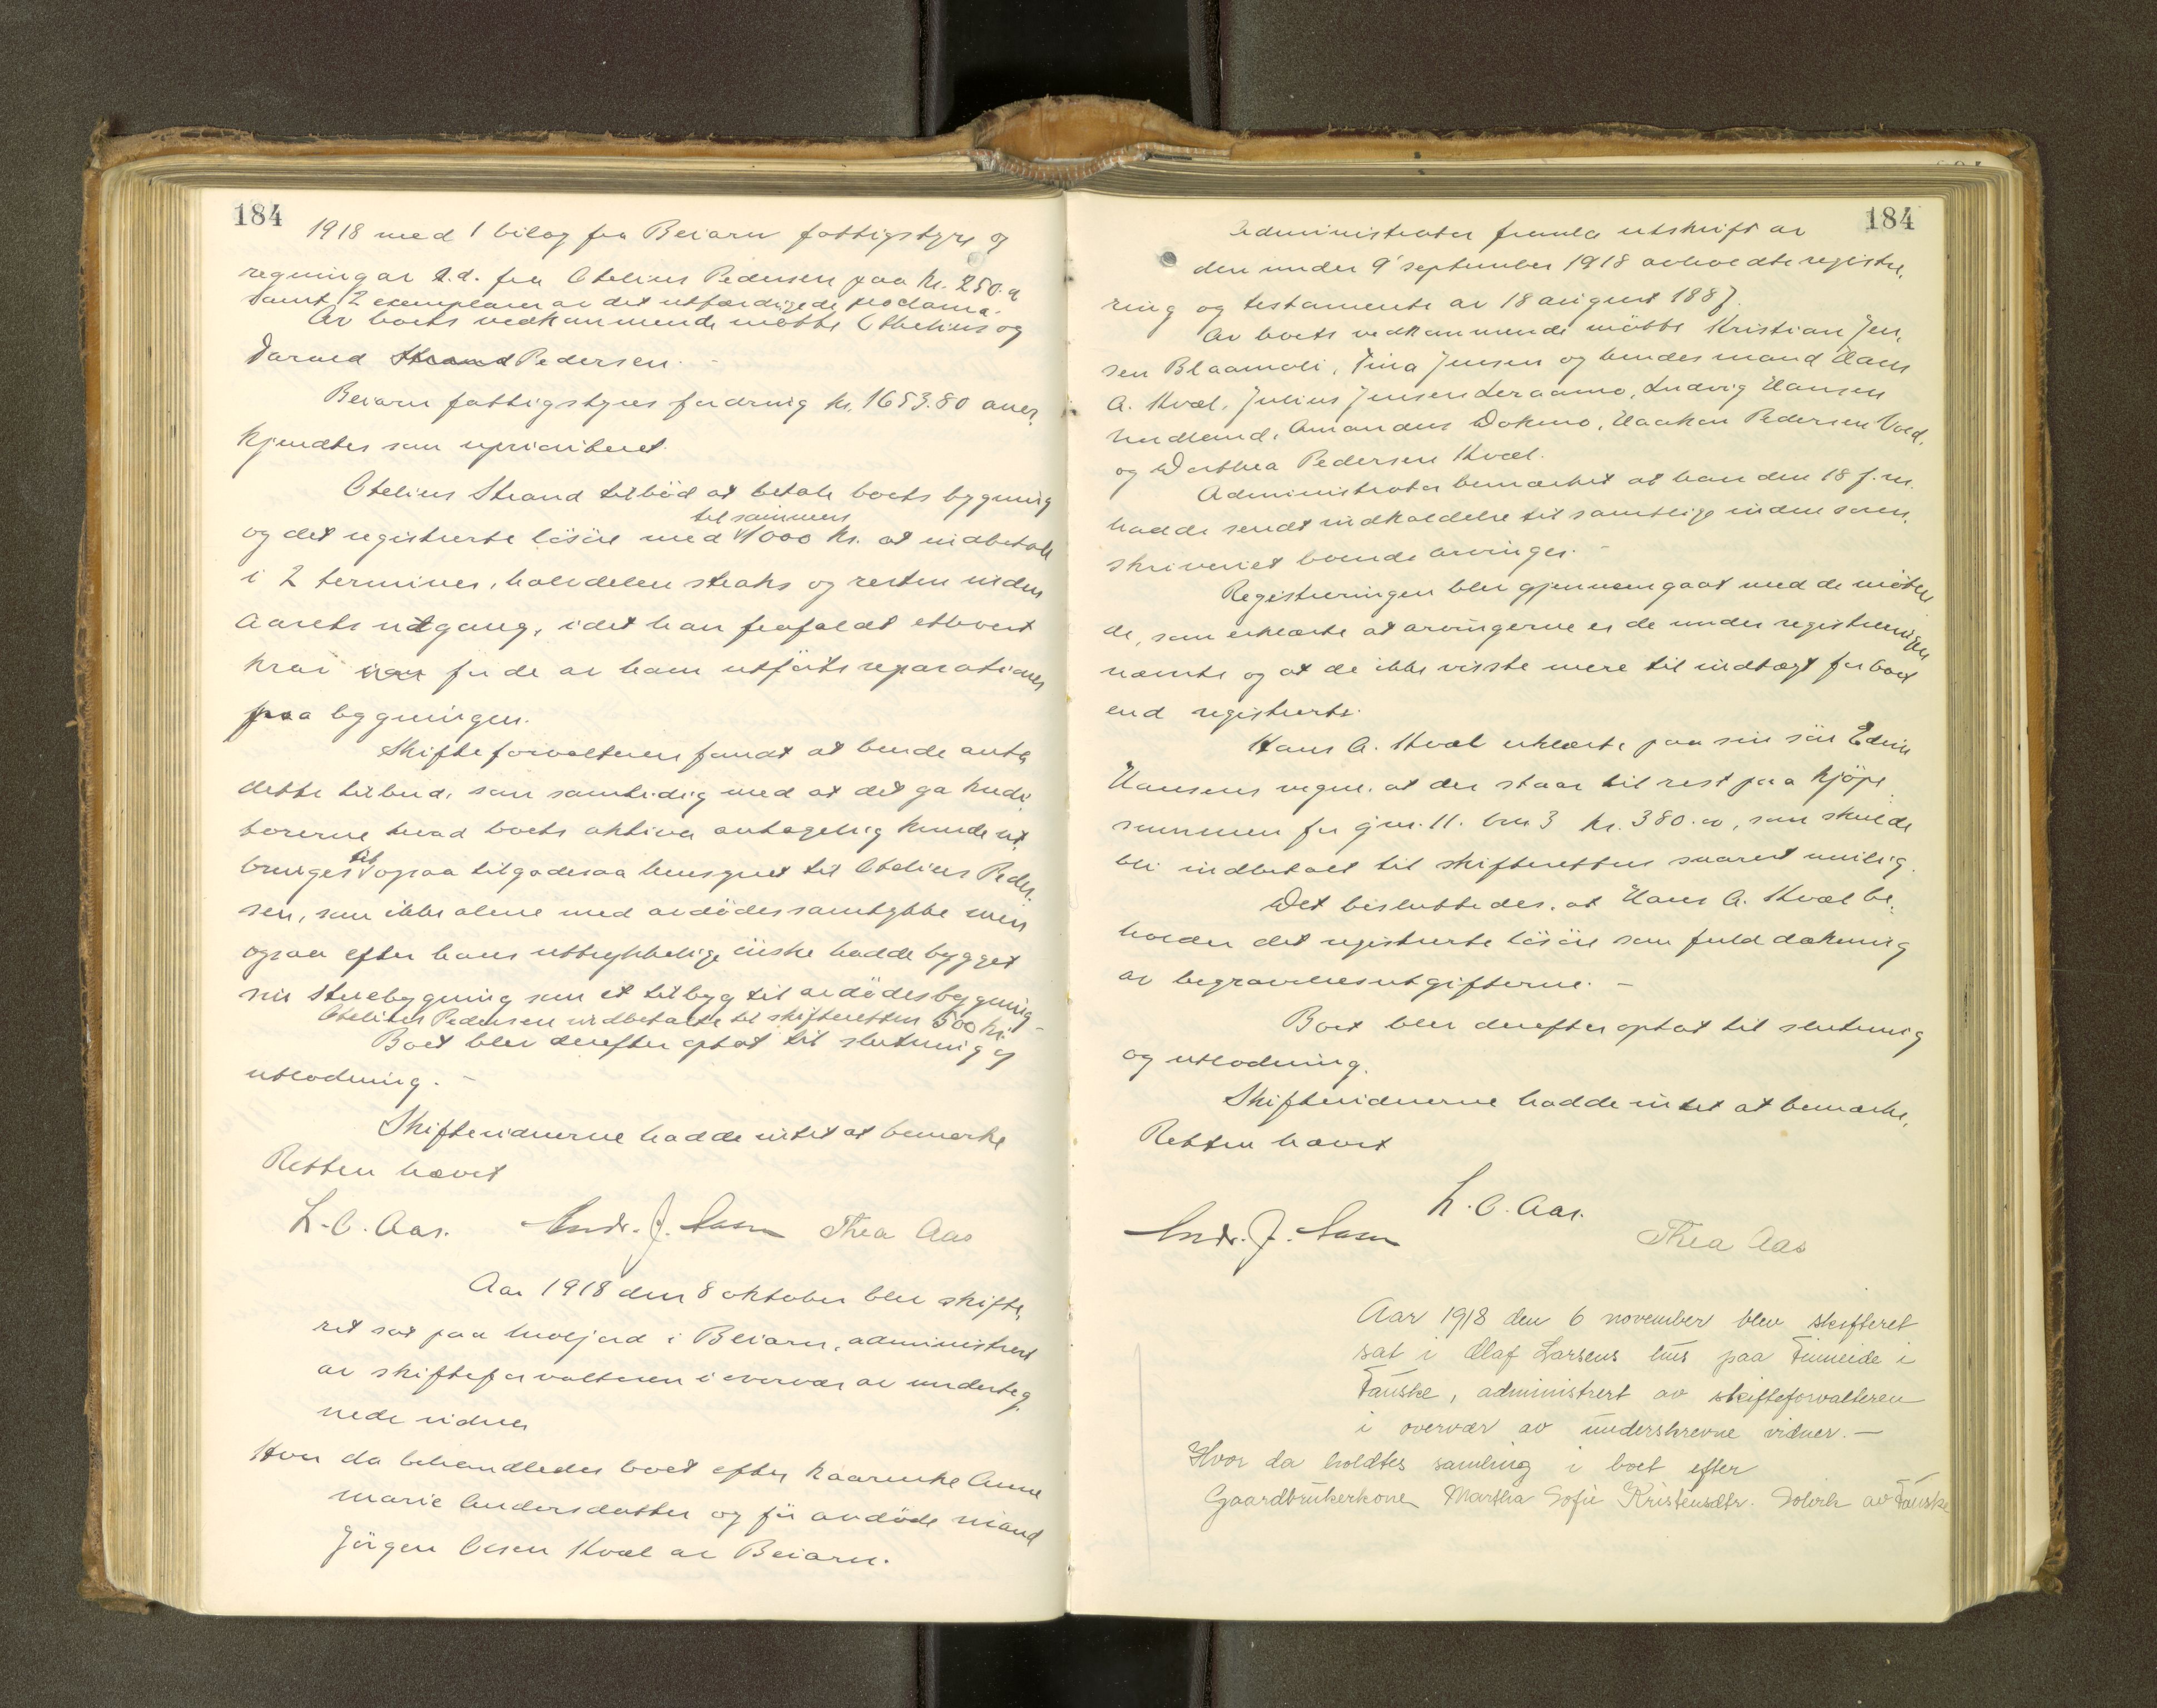 184
1918 med 1 bilag fra Beiarn fattigstyre og
regning av s.d. fra Otelius Pedersen paa kr. 250.
samt 2 exemplarer av det utfærdigede proclama.
Av boets vedkommende møtte Othelius og
Harald Strand Pedersen. -
Beiarn fattigstyres fordring kr. 1653.80 aner,
kjendtes som uprioritert.
Otelius Strand tilbød at betale boets bygning
til sammens
og det registrerte løsøre med 1000 kr. at indbetale
i 2 terminer, halvdelen straks og resten inden
aarets utgang, idet han frafaldt ethvert
krav for de av ham utførte reparationer
paa bygningen.
Skifteforvalteren fandt at burde anta
dette tilbud, som samtidig med at det ga kredi,
torerne hvad boets aktiva antagelig kunde ut,
bringes til ogsaa tilgodesaa hensynet til Otelius Peder,
sen, som ikke alene med avdødes samtykke men
ogsaa efter hans uttrykkelige ønske hadde bygget
sin stuebygning som et tilbyg til avdødes bygning -
Otelius Pedersen indbetalte til skifteretten 500 kr.
Boet blev derefter optat til slutning og
utlodning. -
Skiftevidnerne hadde intet at bemerke
Retten hævet
L. C. Aas. Andr. J. Aasen Thea Aas
Aar 1918 den 8 oktober blev skifte,
ret sat paa Moljord i Beiarn, administrert
av skifteforvalteren i overvær av underteg,
nede vidner
Hvor da behandledes boet efter kaarenke Anne
Marie Andersdatter og før avdøde mand
Jørgen Olsen Kvæl av Beiarn.
184
Administrator fremla utskrift av
den under 9' september 1918 avholdte registre,
ring og testamente av 18 august 1887.
Av boets vedkommende møtte Kristian Jen,
sen Blaamoli, Tina Jensen og hendes mand Hans
A. Kvæl, Julius Jensen Leraamo, Ludvig Hansen
Amandus Dokmo, Haakon Pedersen Vold,
og Dorthea Pedersen Kvæl.
Administrator bemærket at han den 18 f.m.
hadde sendt indkaldelse til samtlige inden soren,
skriveriet boende arvinger. -
Registreringen blev gjennemgaat med de møten,
de, som erklærte at arvingerne er de under registreringen
nævnte og at de ikke visste mere til indtægt for boet
end registrerte.
Hans A. Kvæl erklærte paa sin søn Edvin
Hansens vegne, at der staar til rest paa kjøpe,
summen for gnr. 11. bnr 3 kr. 380.00, som skulde
bli indbetalt til skifteretten snarest mulig.
Det besluttedes, at Hans A. Kvæl be,
holder det registrerte løsøre som fuld dækning
av begravelsesutgifterne. -
Boet blev derefter optat til slutning
og utlodning.
Skiftevidnerne hadde intet at bemærke,
Retten hævet
L. C. Aas.
Andr. J. Aasen Thea Aas
Aar 1918 den 6 november blev skifteret
sat i Olaf Larsens hus paa Finneide i
Fauske, administrert av skifteforvalteren
i overvær av underskrevne vidner. -
Hvor da holdtes samling i boet efter
Gaardbrukerkone Martha Sofie Kristensdtr. av Fauske